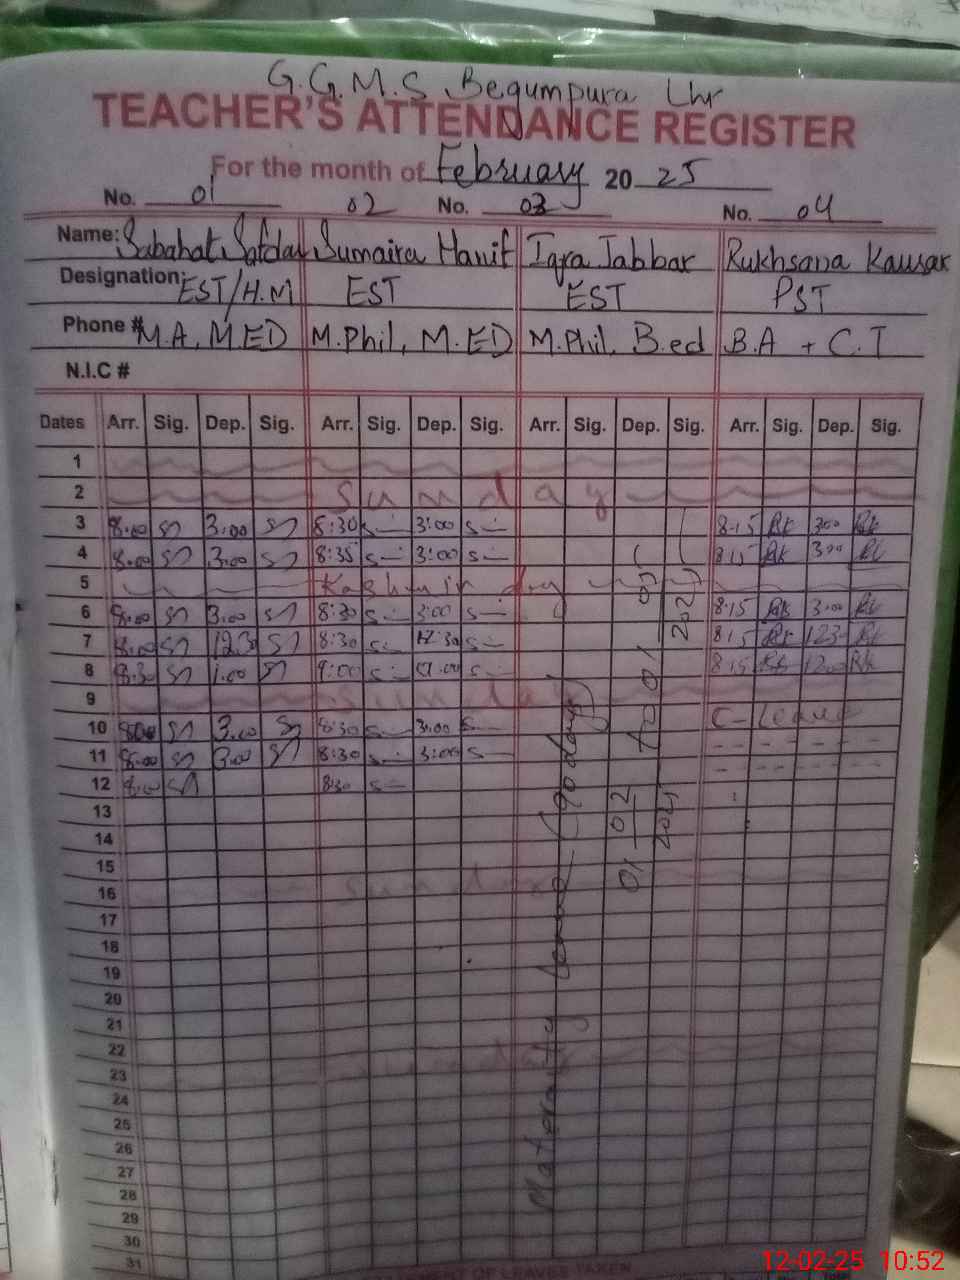 G.G.M.S Begumpura Lhr
TEACHER'S ATTENDANCE REGISTER
For the month of February 2025
No. 01 02 No. 03 No. 04
Name: Sabahat Safdar Sumaira Hanif Iqra Jabbar Rukhsana Kausar
Designation: EST/H.M EST EST PST
Phone # M.A, M.ED M.Phil, M.ED M.Phil, B.ed B.A + C.T
N.I.C #
Dates Arr. Sig. Dep. Sig. Arr. Sig. Dep. Sig. Arr. Sig. Dep. Sig. Arr. Sig. Dep. Sig.
1
2 Sunday
3 8:00 3:00 8:30 3:00 8:15 Rk 3:00 Rk
4 8:00 3:00 8:35 3:00 8:15 Rk 3:00 Rk
5 Kashmir day
6 8:00 3:00 8:30 3:00 8:15 Rk 3:00 Rk
7 8:00 12:30 8:30 12:30 8:15 Rk 123 Rk
8 8:30 1:00 9:00 8:15 Rk 1200 Rk
9 Sunday
10 8:00 3:00 8:30 3:00 C-Leave
11 8:00 3:00 8:30 3:00
12 8:00 8:30
13
14
15
16 Sunday
17
18
19
20
21
22
23 Sunday
24
25
26
27
28
29
30
31
Maternity leave (90 days)
01-02-2025 to 01-05-2025
LEAVES TAKEN
12-02-25 10:52